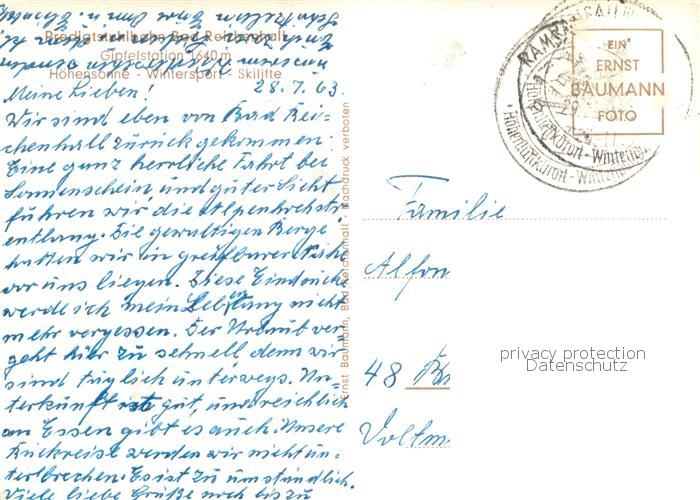 Predigtstuhlbahn Bad Reichenhall
Gipfelstation 1640 m
Höhensonne - Wintersport - Skilifte
Meine Lieben! 28.7.63
Wir sind eben von Bad Rei-
chenhall zurück gekommen.
Eine ganz herrliche Fahrt bei
Sonnenschein und guter Sicht
führen wir die Alpenhochstr.
entlang. Die gewaltigen Berge
hatten wir in greifbarer Nähe
vor uns liegen. Diese Eindrücke
werde ich mein Leb lang nicht
mehr vergessen. Der Urlaub ver-
geht hier zu schnell denn wir
sind täglich unterwegs. Un-
terkunft ist gut, und reichlich
an Essen gibt es auch. Unsere
Rückreise werden wir nicht un-
terbrechen. Es ist zu umständlich.
Viele liebe Grüße noch bis zu
Ernst Baumann, Bad Reichenhall Nachdruck verboten
RAMSAU
Höhenluftkurort - Wintersport
EIN
ERNST
BAUMANN
FOTO
Familie
Alfon
48 B
Voltm
privacy protection
Datenschutz